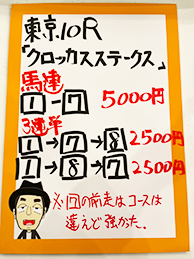 東京10R
「クロッカスステークス」
馬連
1-7 5000円
3連単
1→7→8 2500円
1→8→7 2500円
※1の前走はコースは
違えど強かった.